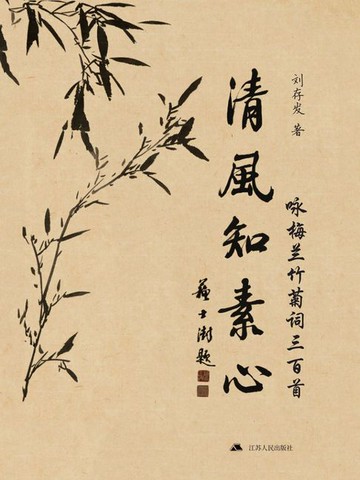 刘存发 著
咏梅兰竹菊词三百首
清風知素心
苏士澍题
江苏人民出版社